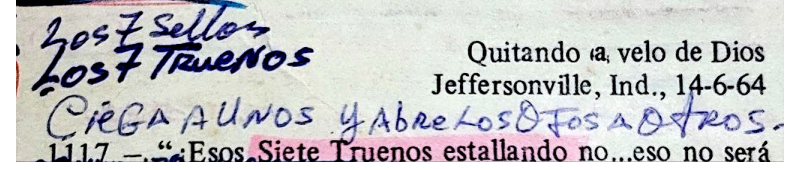 Los 7 Sellos
Los 7 Truenos
Quitando a, velo de Dios
Jeffersonville, Ind., 14-6-64
CIEGA A UNOS Y Abre LOS OJOS A OTROS.
1117.— “¡Esos Siete Truenos estallando no...eso no será